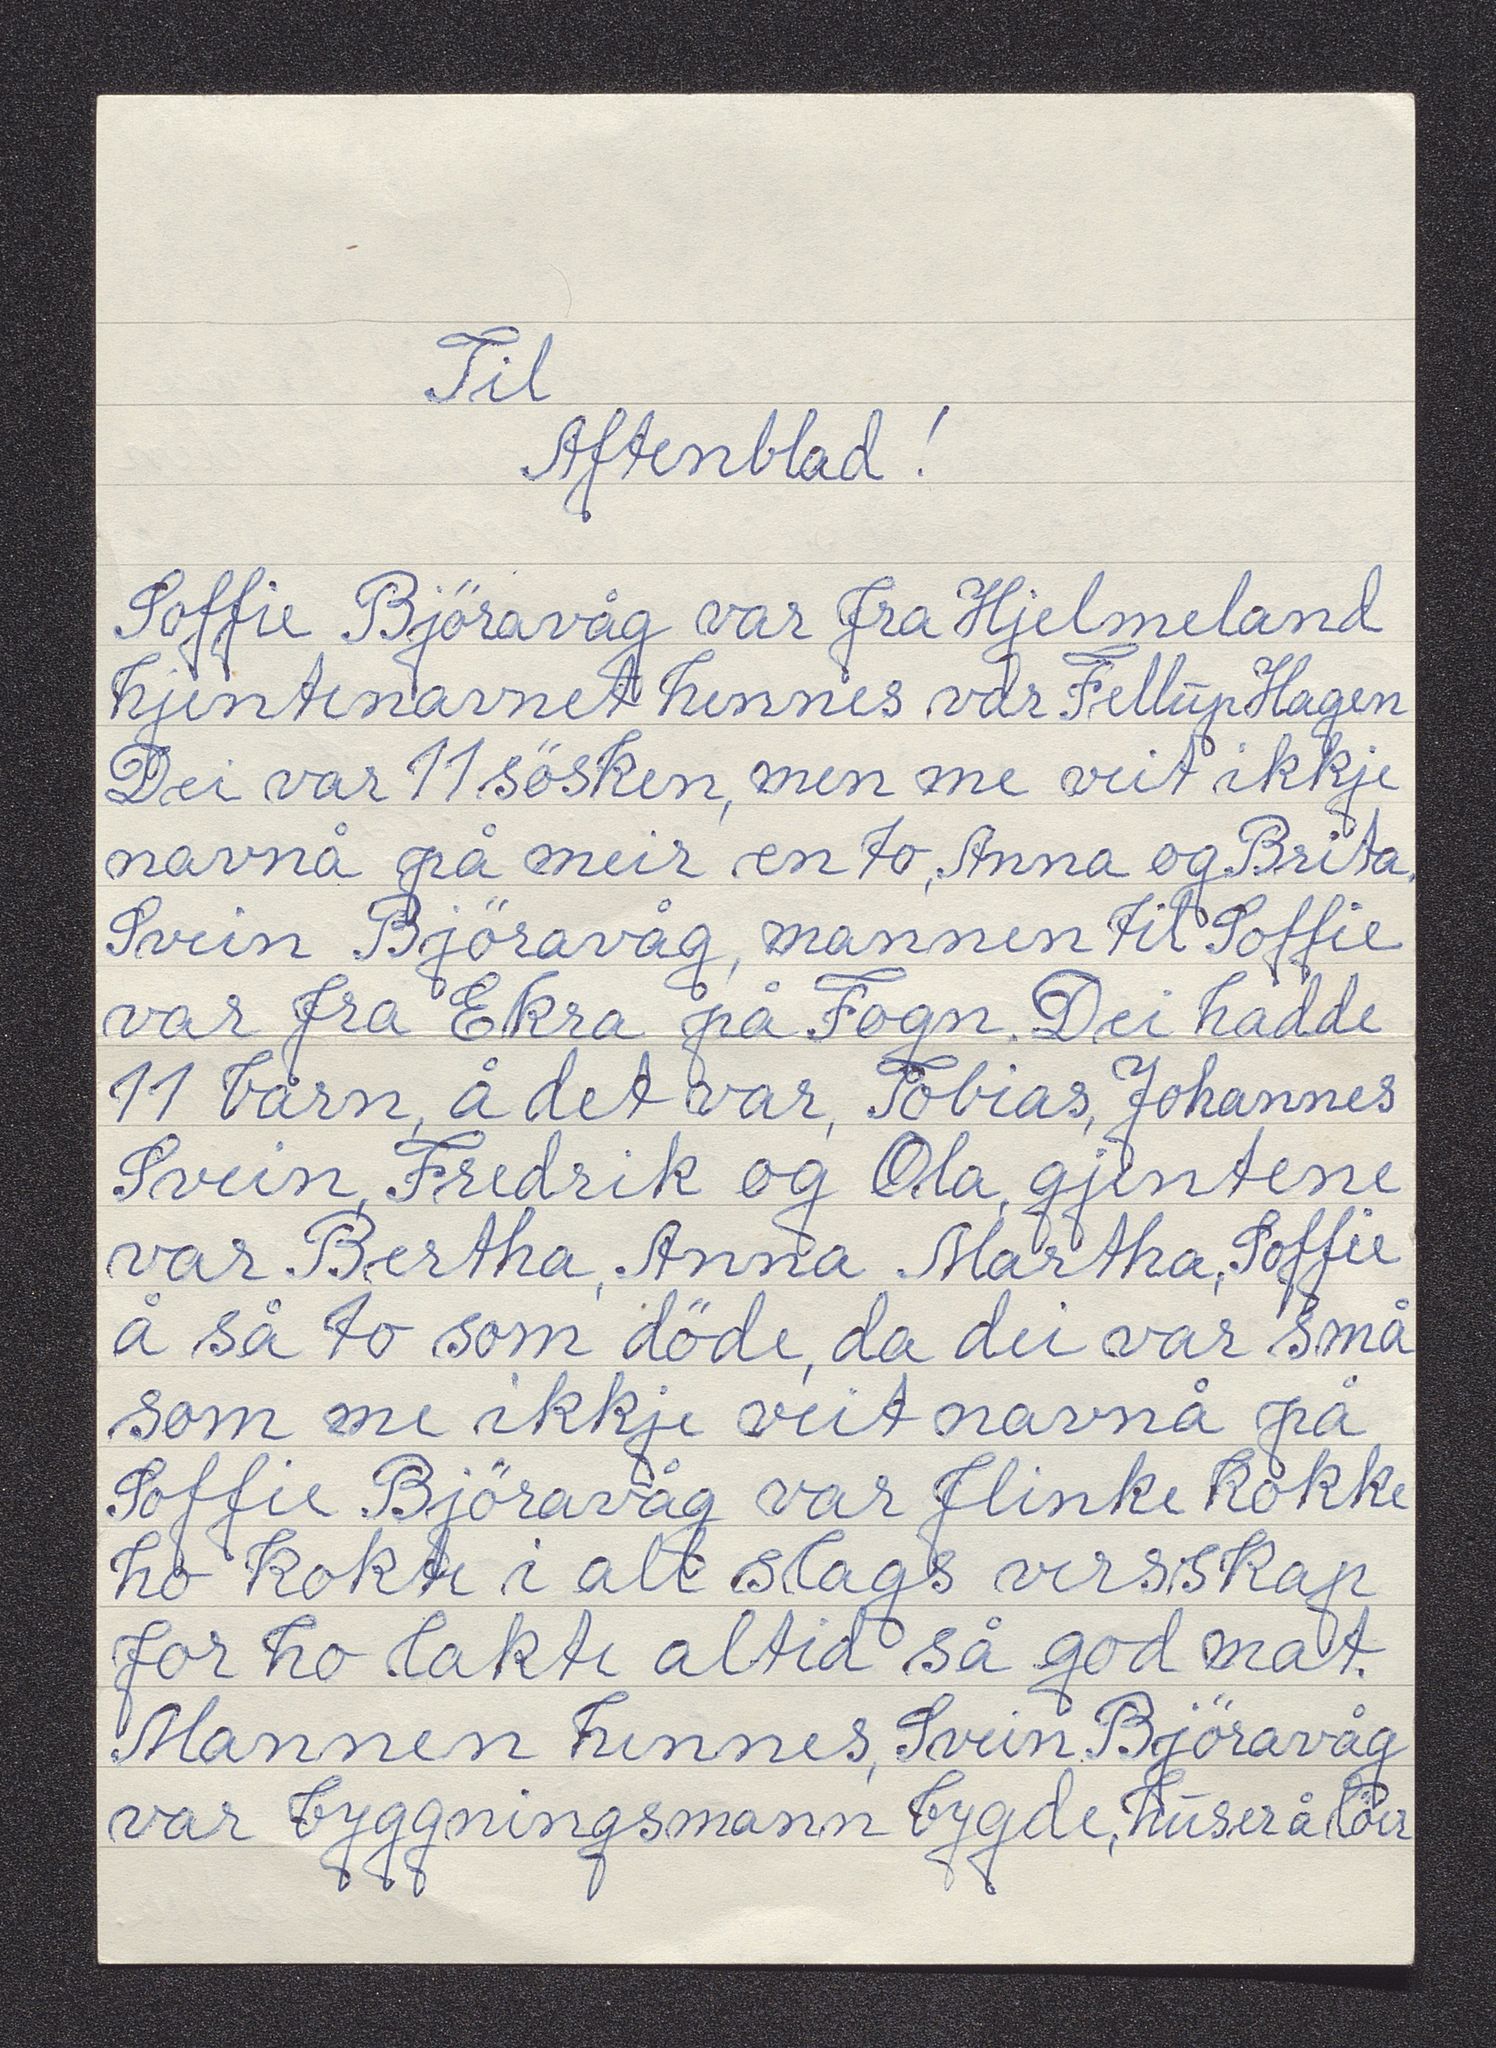 Til
Aftenblad!
Soffie Björavåg var fra Hjelmeland
hjentenavnet hennes var Fellup Hagen
Dei var 11 sösken, men me veit ikkje
navnå på meir en to, Anna og Brita.
Svein Björavåg, mannen til Soffie
var fra Ekra på Fogn. Dei hadde
11 barn, å det var, Tobias, Johannes
Svein, Fredrik og Ola, gjentene
var Bertha, Anna Martha, Soffie
å så to som döde, da dei var små
som me ikkje veit navnå på
Soffie Björavåg var flinke kokke
ho kokte i alt slags versskap
for ho lakte altid så god mat.
Mannen hennes, Svein Björavåg
var byggningsmann bygde, huser å löer